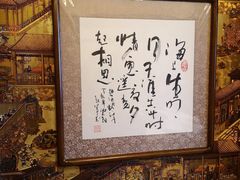 海上生明
月天涯共此时
情人怨遥夜竟夕
起相思